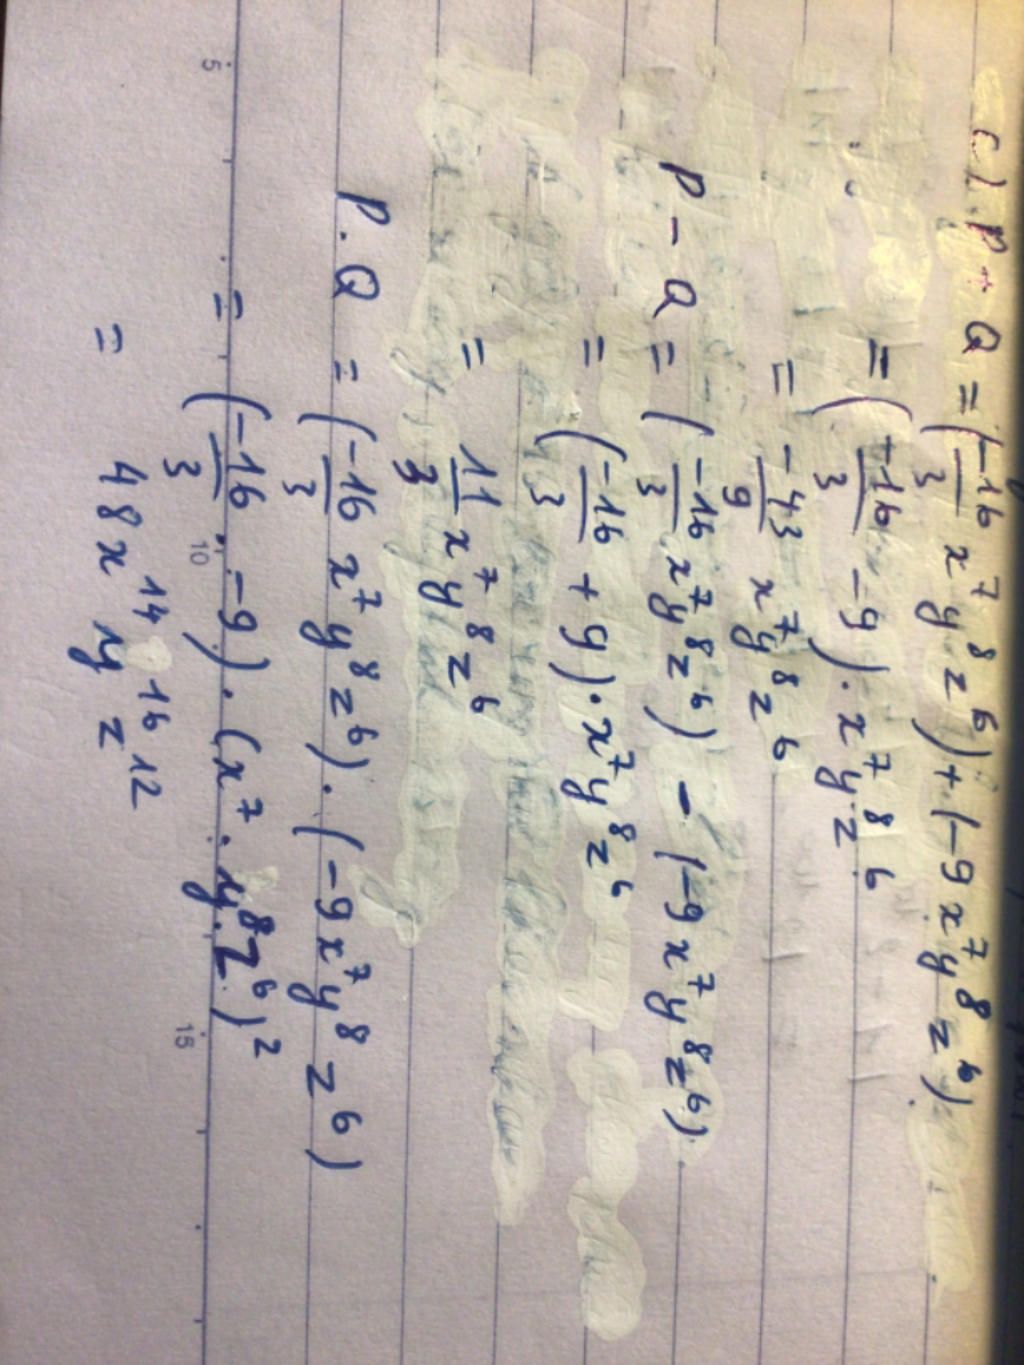 c). P + Q = (-16/3 x⁷y⁸z⁶) + (-9x⁷y⁸z⁶)
= (-16/3 - 9) . x⁷y⁸z⁶
= -43/9 x⁷y⁸z⁶
P - Q = (-16/3 x⁷y⁸z⁶) - (-9x⁷y⁸z⁶)
= (-16/3 + 9) . x⁷y⁸z⁶
= 11/3 x⁷y⁸z⁶
P . Q = (-16/3 x⁷y⁸z⁶) . (-9x⁷y⁸z⁶)
= (-16/3 . -9) . (x⁷ . y⁸ . z⁶)²
= 48x¹⁴y¹⁶z¹²
5 10 15